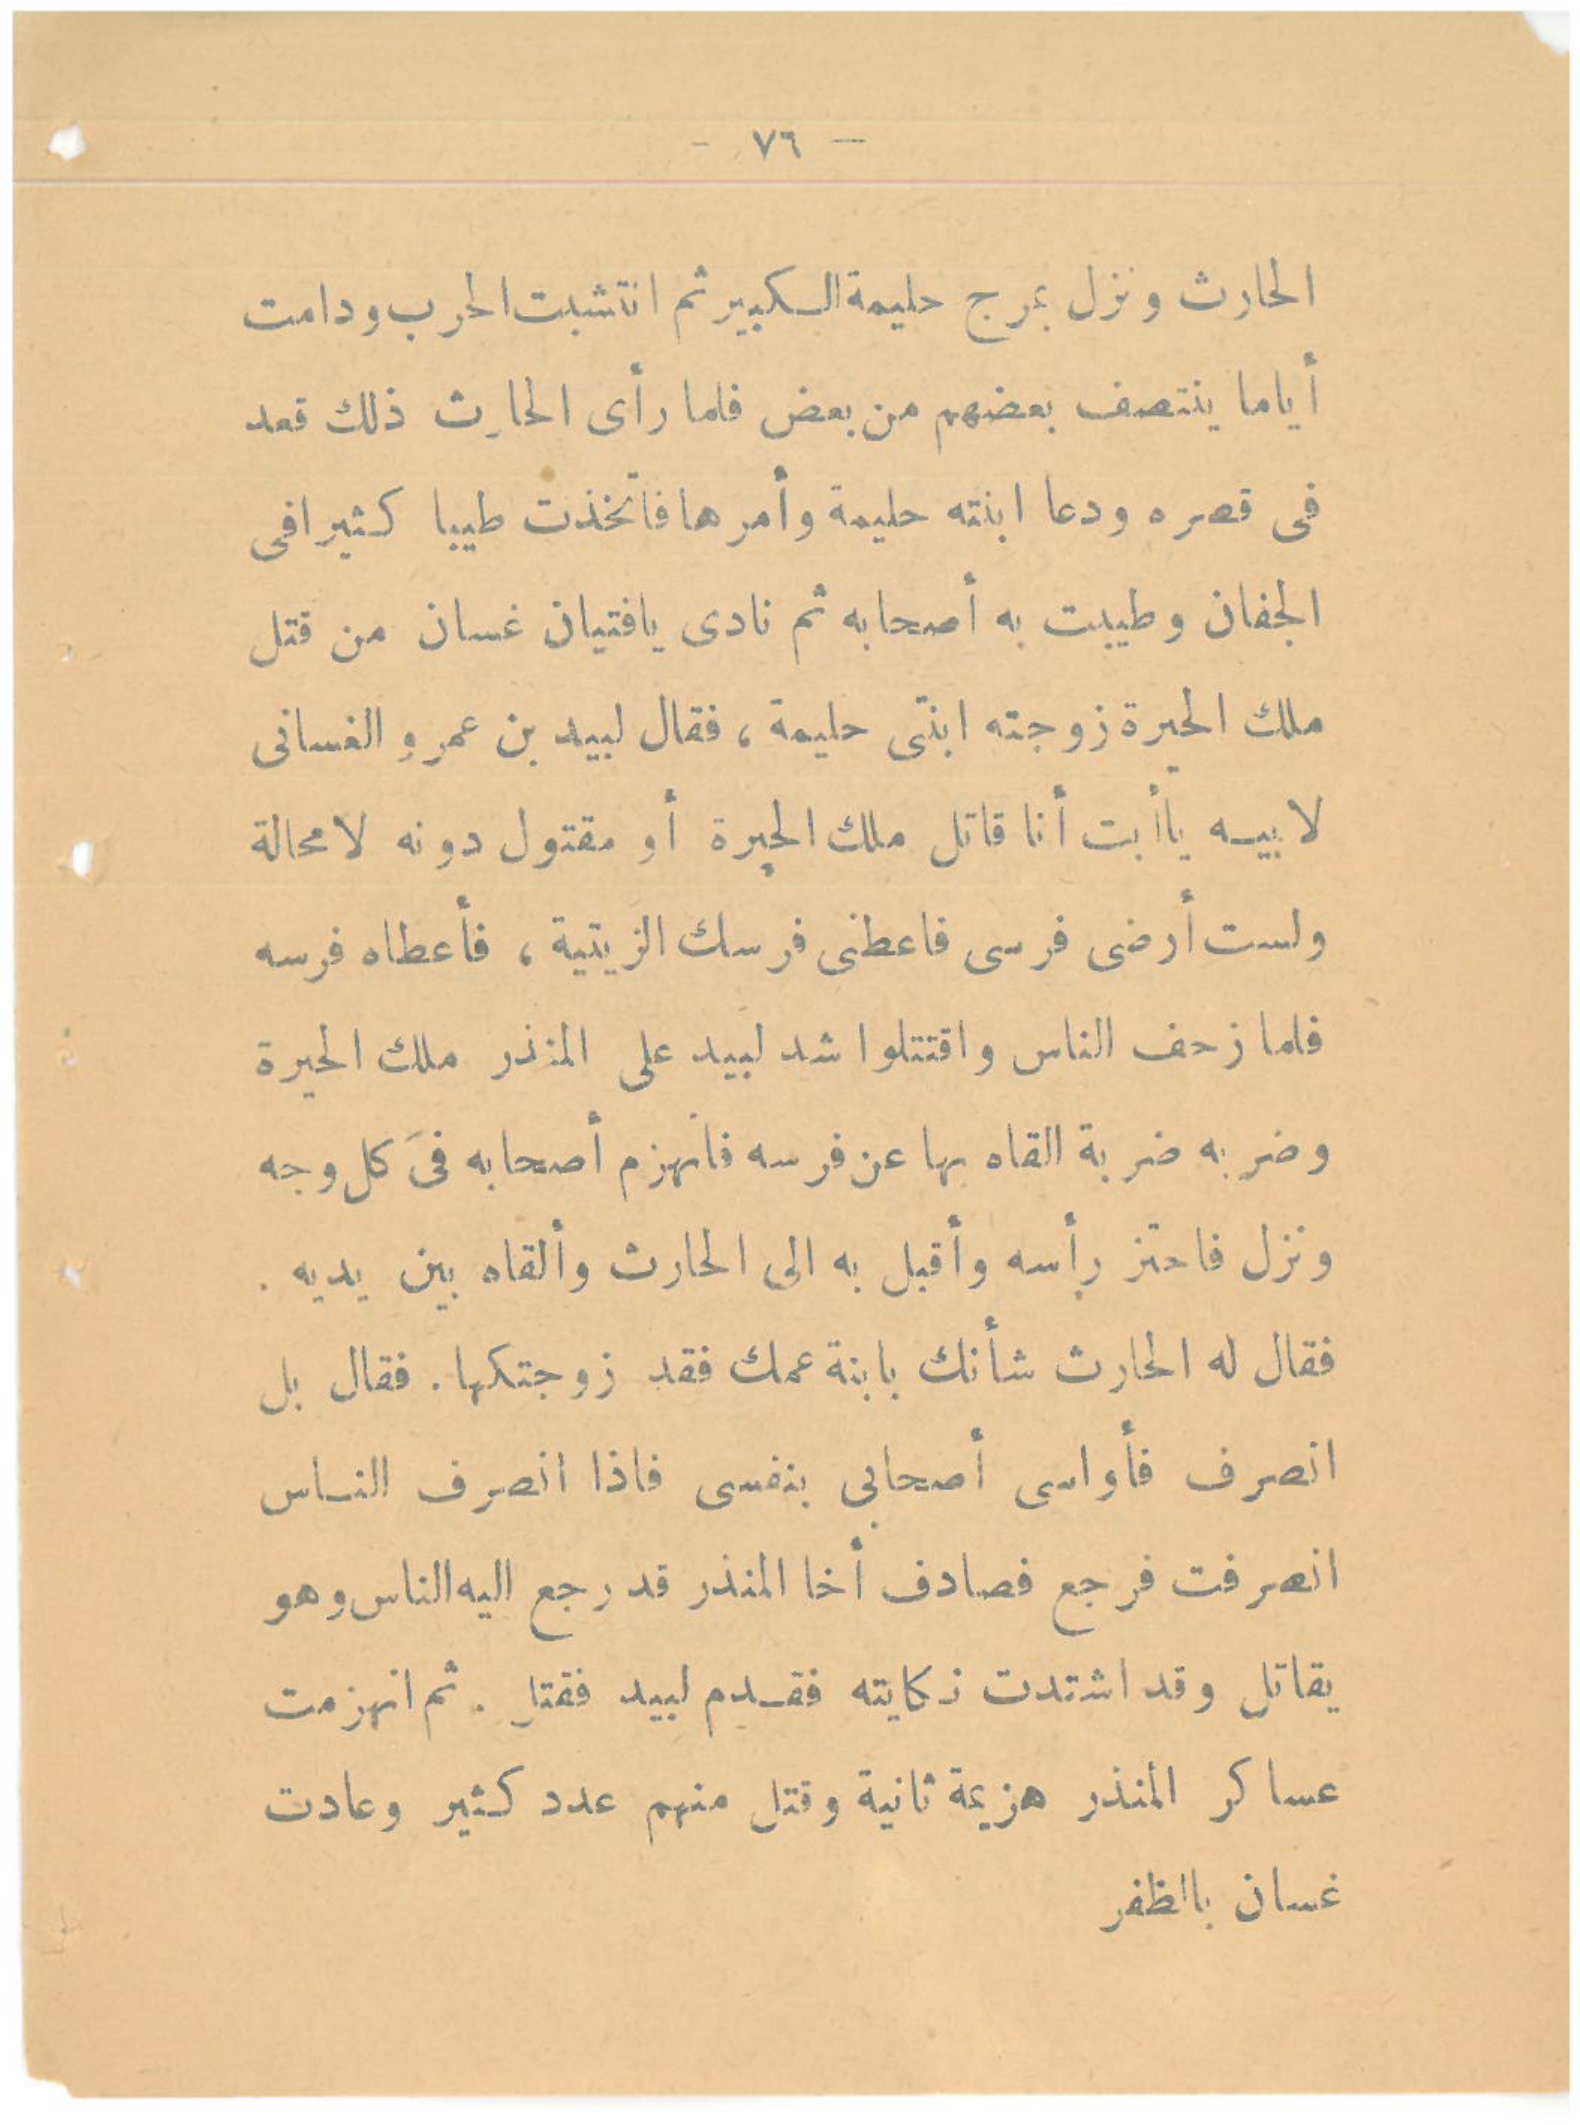 — ٧٦ -
الحارث ونزل بمرج حليمة الكبير ثم انتشبت الحرب ودامت
أياما ينتصف بعضهم من بعض فلما رأى الحارث ذلك قعد
فى قصره ودعا ابنته حليمة وأمرها فاتخذت طيبا كثيرا فى
الجفان وطيبت به أصحابه ثم نادى يافتيان غسان من قتل
ملك الحيرة زوجته ابنتى حليمة ، فقال لبيد بن عمرو الغسانى
لابيه ياأبت أنا قاتل ملك الحيرة أو مقتول دونه لا محالة
ولست أرضى فرسى فاعطنى فرسك الزيتية ، فأعطاه فرسه
فلما زحف الناس واقتتلوا شد لبيد على المنذر ملك الحيرة
وضربه ضربة القاه بها عن فرسه فانهزم أصحابه فى كل وجه
ونزل فاحتز رأسه وأقبل به الى الحارث وألقاه بين يديه .
فقال له الحارث شأنك بابنة عمك فقد زوجتكها . فقال بل
انصرف فأواسى أصحابى بنفسى فاذا انصرف الناس
انصرفت فرجع فصادف أخا المنذر قد رجع اليه الناس وهو
يقاتل وقد اشتدت نكايته فقدم لبيد فقتل . ثم انهزمت
عساكر المنذر هزيمة ثانية وقتل منهم عدد كثير وعادت
غسان بالظفر